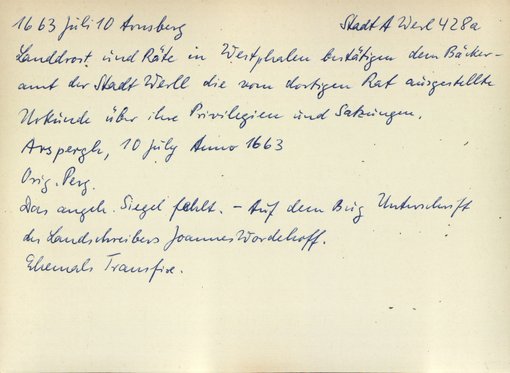 1663 Juli 10 Arnsberg Stadt A Werl 428a
Landdrost und Räte in Westphalen bestätigen dem Bäcker-
amt der Stadt Werll die vom dortigen Rat ausgestellte
Urkunde über ihre Privilegien und Satzungen.
Arspergh, 10 July Anno 1663
Orig. Perg.
Das angeh. Siegel fehlt. - Auf dem Bug Unterschrift
des Landschreibers Joannes Wordehoff.
Ehemals Transfix.